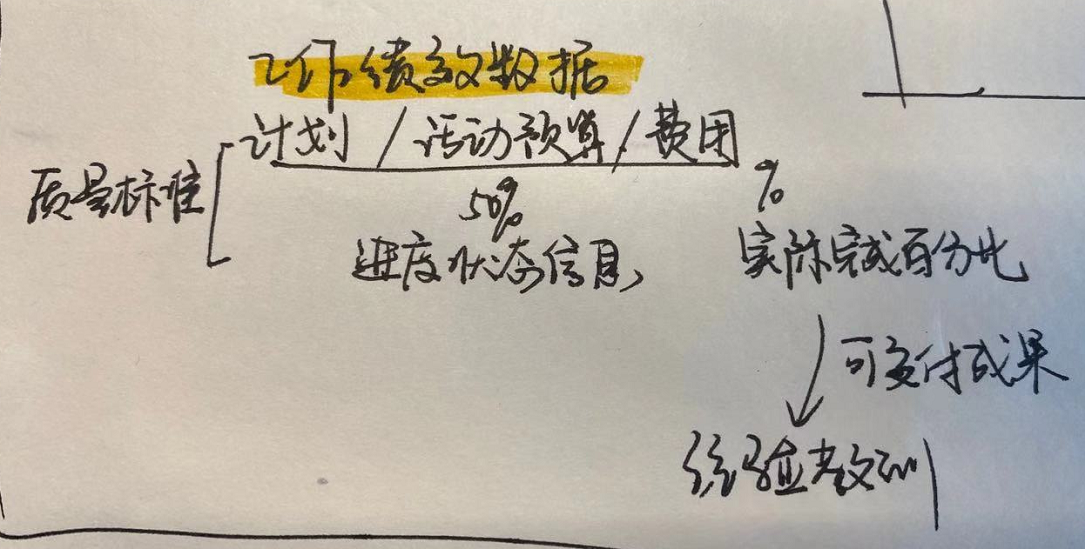 工作绩效数据
计划 / 活动预算 / 费用
质量标准
50%
%
进度状态信息
实际完成百分比
可交付成果
经验教训